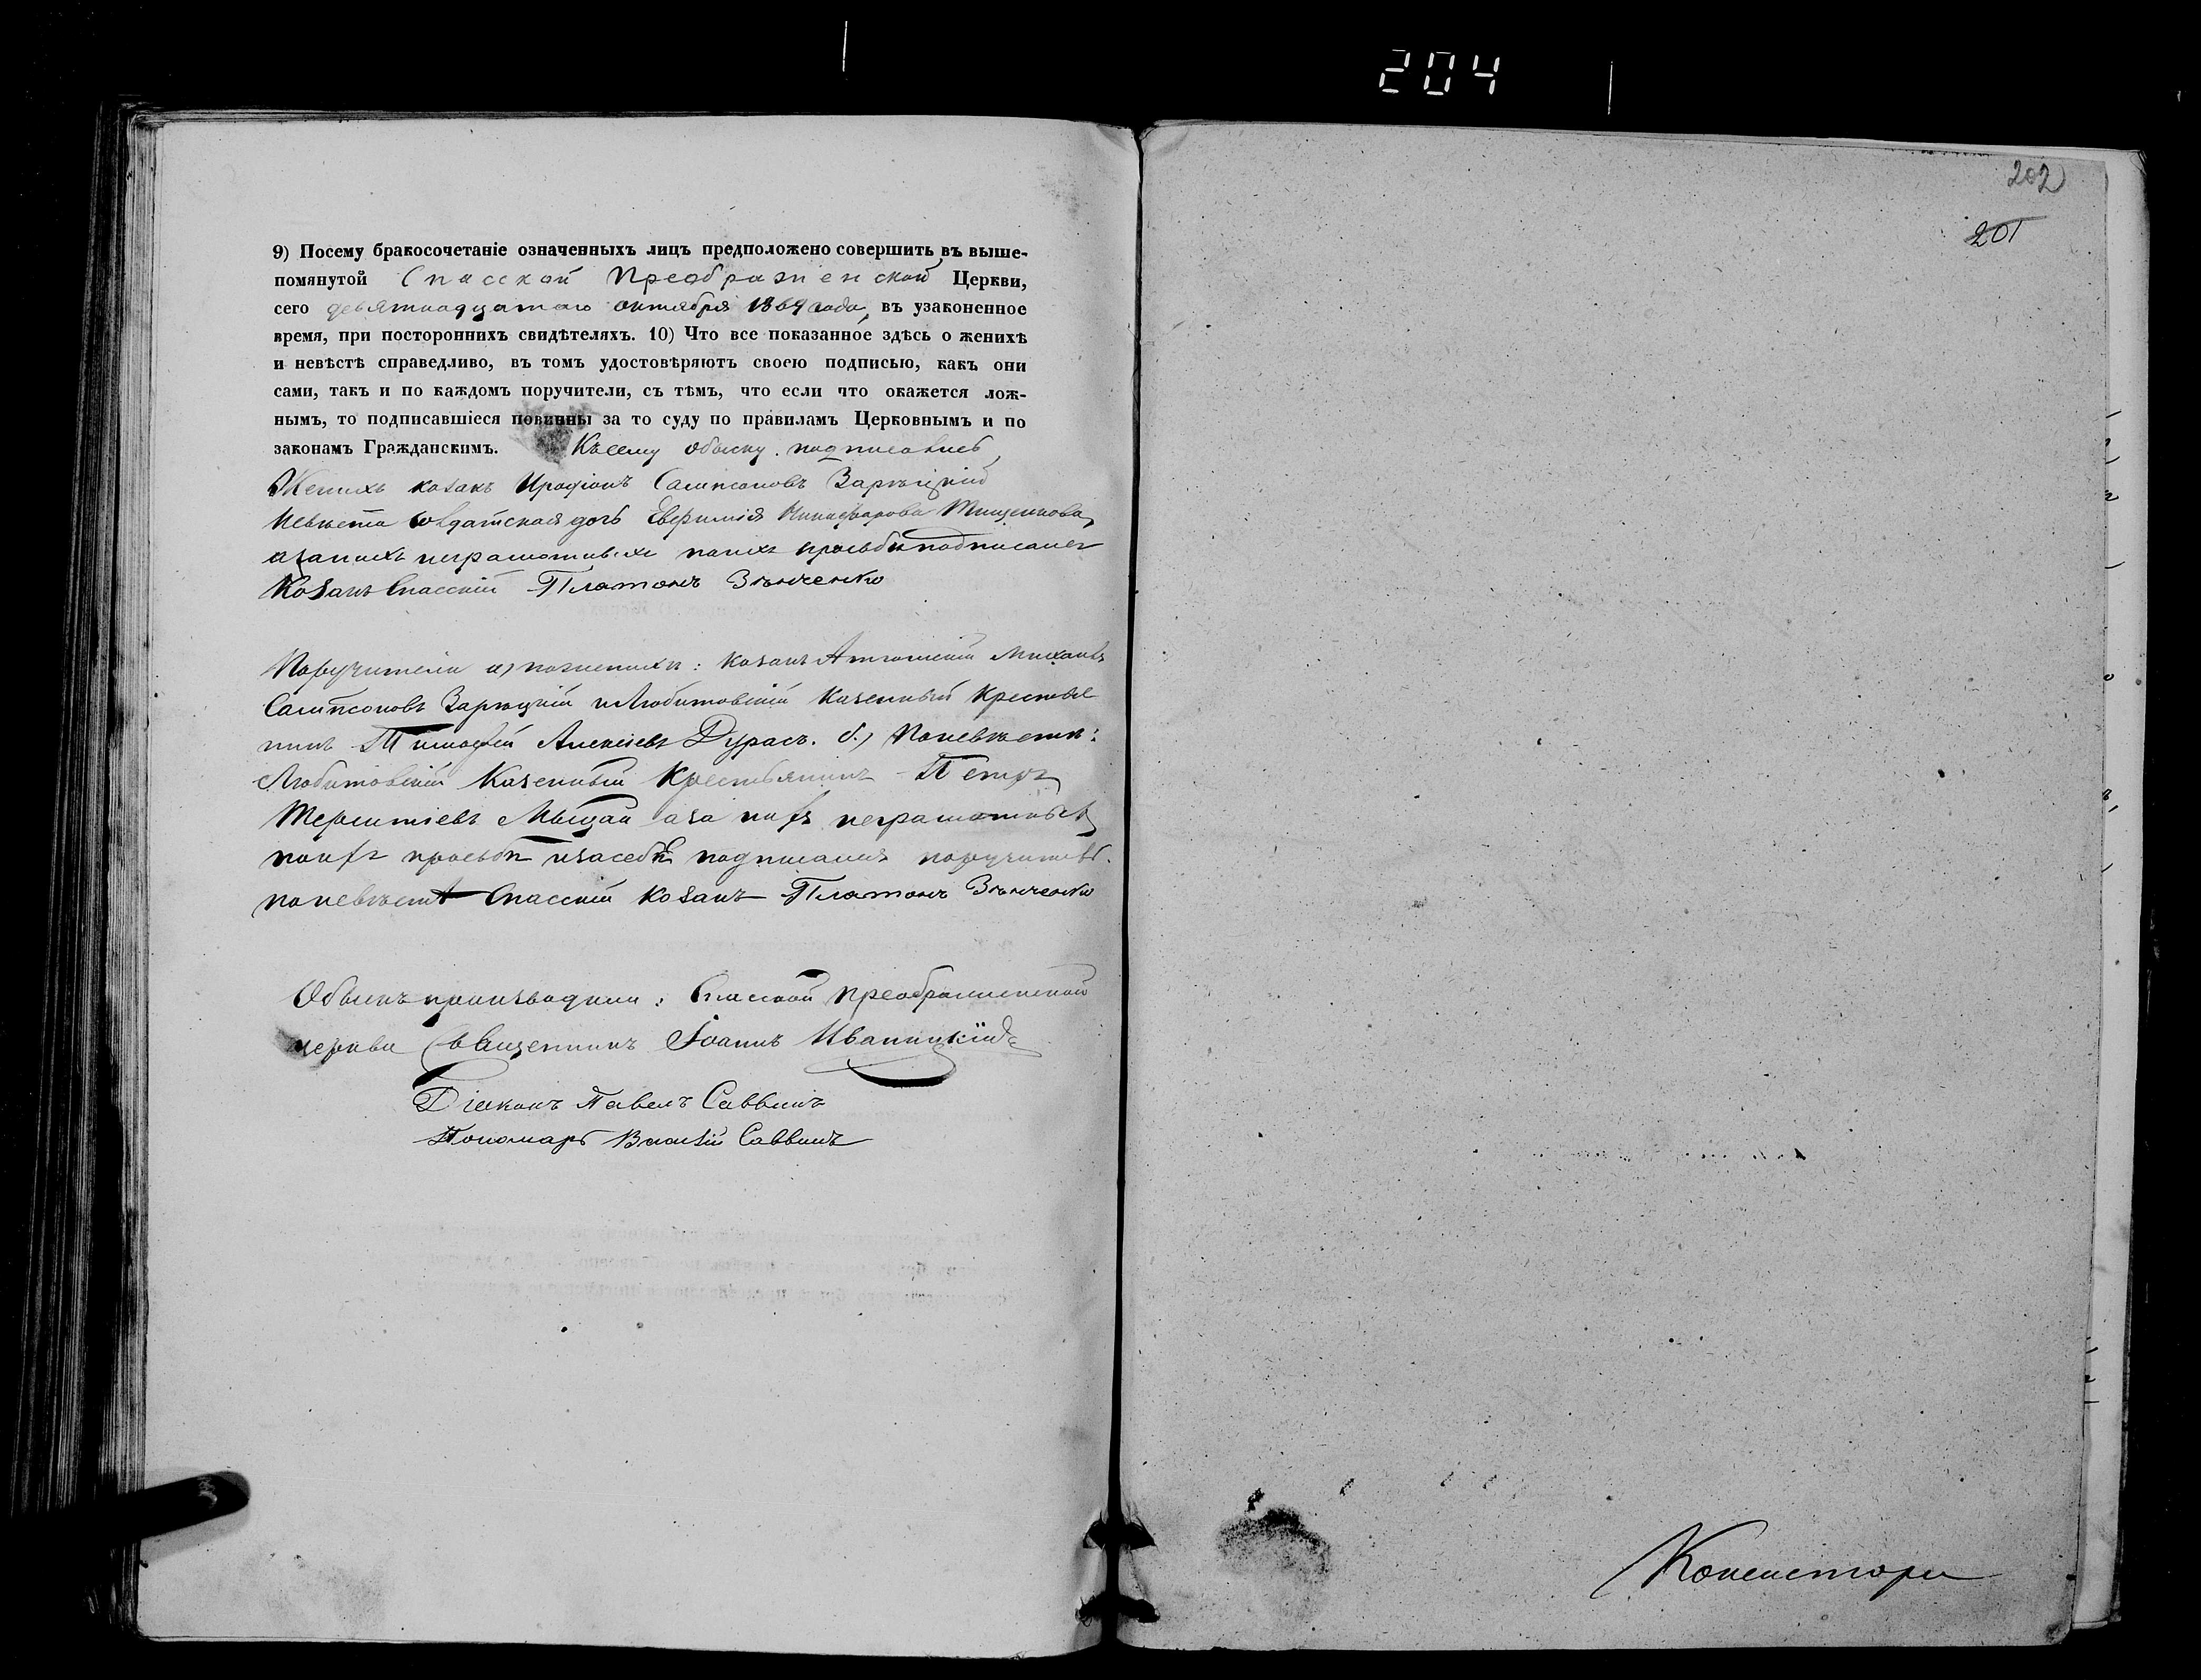 204
202
201
9) Посему бракосочетаніе означенныхъ лицъ предположено совершить въ выше-
помянутой Спаской Преображенской Церкви,
сего девятнадцатаго октября 1869 года, въ узаконенное
время, при постороннихъ свидѣтеляхъ. 10) Что все показанное здѣсь о женихѣ
и невѣстѣ справедливо, въ томъ удостовѣряютъ своею подписью, какъ они
сами, такъ и по каждомъ поручители, съ тѣмъ, что если что окажется лож-
нымъ, то подписавшіеся повинны за то суду по правиламъ Церковнымъ и по
законамъ Гражданскимъ. Къ сему обыску подписались
Женихъ козакъ Иродіонъ Сампсоновъ Зарѣцкій
Невѣста солдатская дочь Евфимія Никифорова Тищенкова,
а за нихъ неграмотныхъ по ихъ прозьбѣ подписался
Козакъ Спасскій Платонъ Зѣнченко
Поручители а) по женихѣ: козакъ Михаилъ
Сампсоновъ Зарѣцкій и Любитовскій Казенный Крестья
нинъ Тимофей Алексіевъ Дурасъ. б.) По невѣсти:
Любитовскій Казенный Крестьянинъ Петръ
Терентіевъ а за ихъ неграмотныхъ
по ихъ прозьби и за себѣ подписался поручитель
по невѣстѣ Спасскій козакъ Платонъ Зѣнченко
Обыскъ производили: Спаской Преображенской
церкви Священникъ Іоаннъ Иваницкій
Діаконъ Павелъ Саввинъ
Пономарь Василій Саввинъ